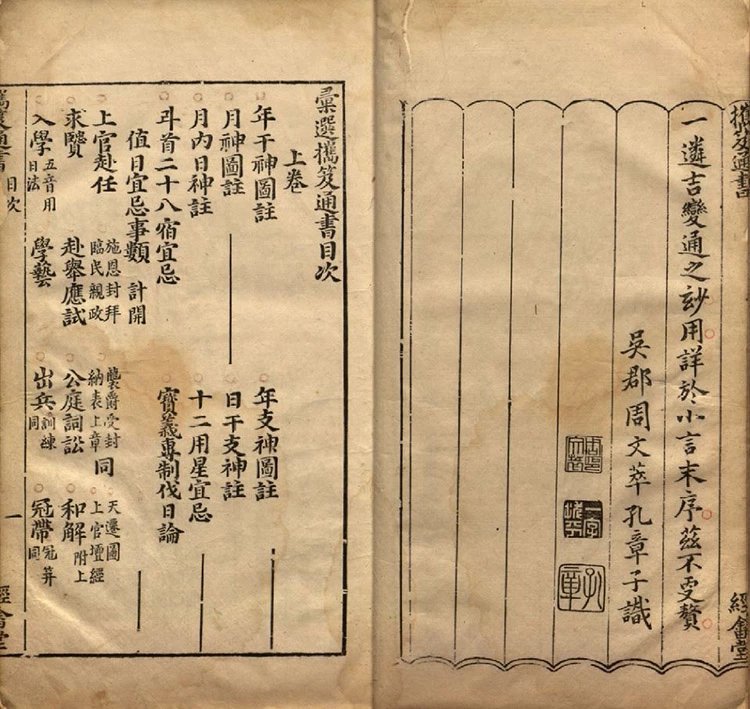 攜笈通書
經畬堂
一遴吉變通之玅用詳於小言末序茲不更贅
吳郡周文萃孔章子識
孔章
彙選攜笈通書目次
上卷
年干神圖註 年支神圖註
月神圖註 日干支神註
月內日神註 十二用星宜忌
斗首二十八宿宜忌 寶義專制伐日論
值日宜忌事類 計開
上官赴任 施恩封拜 臨民親政 襲爵受封 納表上章 同 天遷圖 上官壇經
求贒 赴舉應試 公庭詞訟 和解 附上
入學 五音用日法 學藝 出兵 訓練同 冠帶 冠笄同
攜笈通書 目次 一 經畬堂